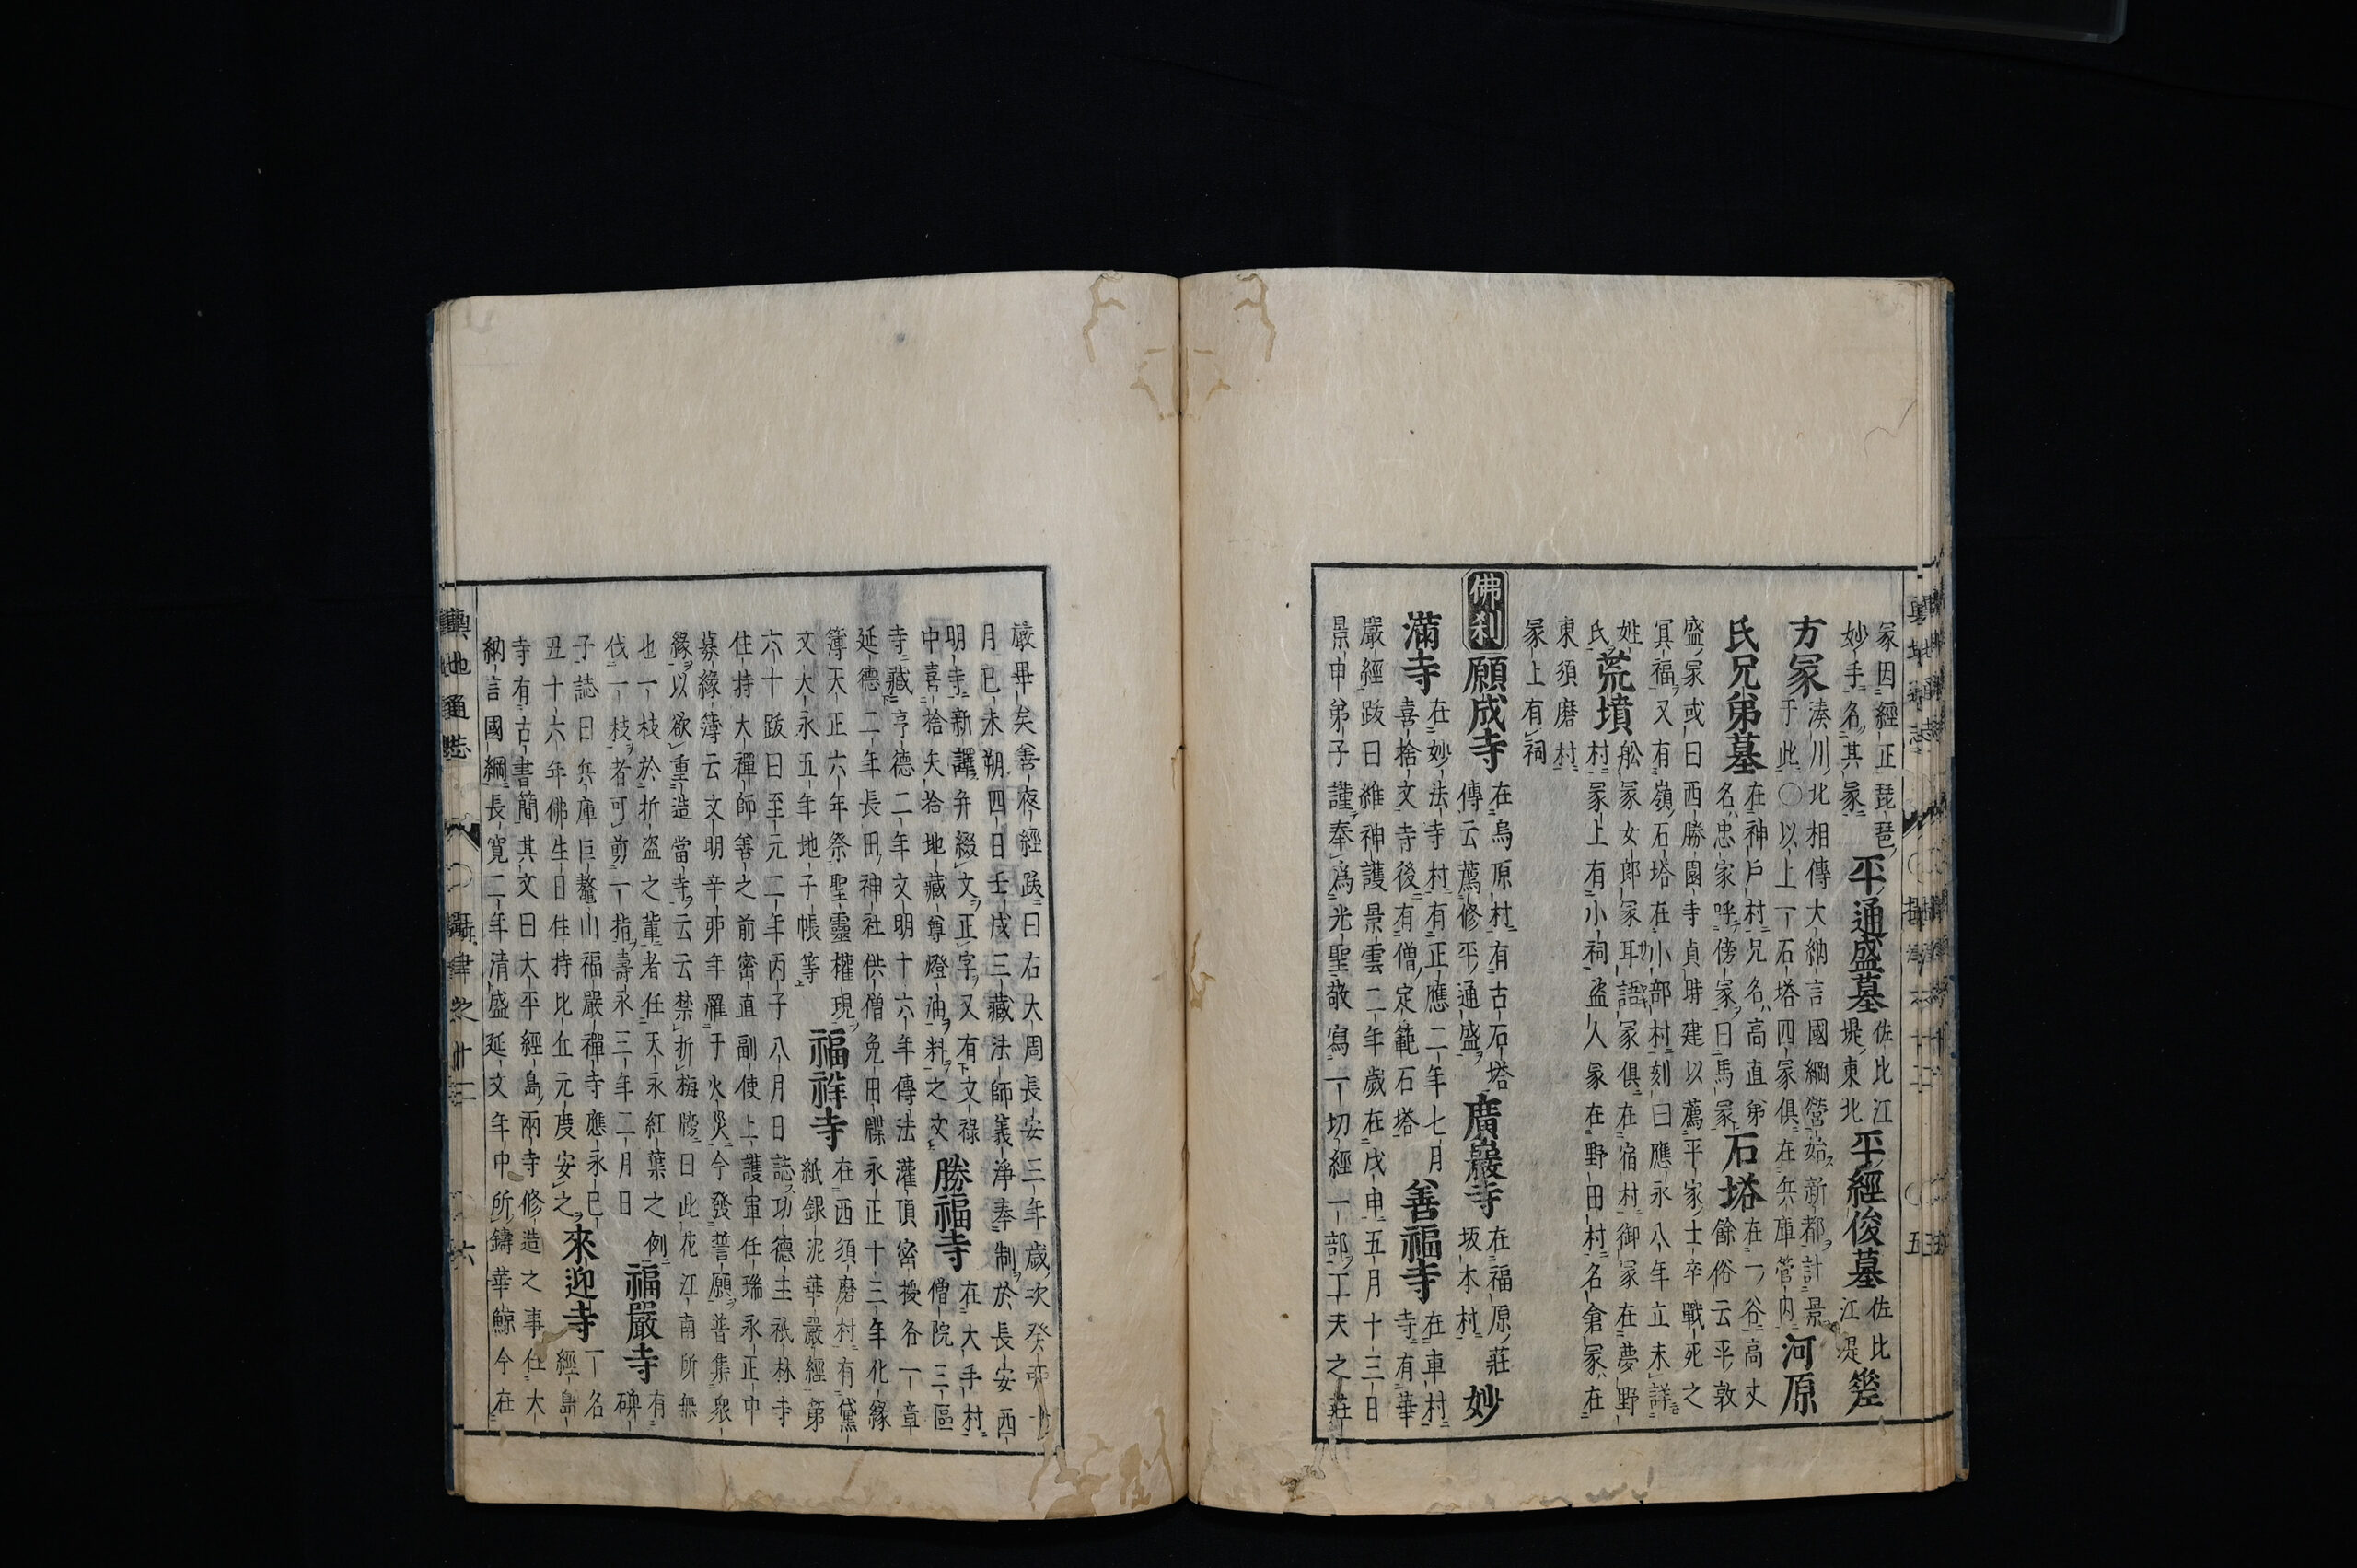 冢因經正琵琶
妙手名其冢
平通盛墓
佐比江
堤東北
平經俊墓
佐比
江堤
塋
方冢
湊川北相傳大納言國綱營始新都計景
于此〇以上一石塔四冢俱在兵庫管内
河原
氏兄弟墓
在神戸村兄名高直弟
名忠家呼傍冢曰馬冢
石塔
在一谷高丈
餘俗云平敦
盛冢或曰西勝園寺貞時建以薦平家士卒戰死之
冥福又有嶺石塔在小部村刻曰應永八年立未詳
姓
氏
荒墳
舩冢女郎冢耳語冢俱在宿村御冢在夢野
村冢上有小祠盗人冢在野田村名倉冢在
東須磨村
冢上有祠
佛刹
願成寺
在烏原村有古石塔
傳云薦修平通盛
廣巖寺
在福原莊
坂木村
妙
滿寺
在妙法寺村有正應二年七月
喜捨文寺後有僧定範石塔
善福寺
在車村
寺有華
嚴經跋曰維神護景雲二年歲在戊申五月十三日
景申弟子謹奉爲光聖敬寫一切經一部工夫之莊
輿地通志
〇攝津之十二
〇五
嚴畢矣善夜經跋曰右大周長安三年歲次癸卯十
月已未朔四日壬戌三藏法師義淨奉制於長安西
明寺新譯弁綴文正字又有文祿
中喜拾矢拾地藏尊燈油料之文
勝福寺
在大手村
僧院三區
寺藏亨德二年文明十六年傳法灌頂密授各一章
延德二年長田神社供僧免田牒永正十三年化緣
簿天正六年祭聖靈權現
文大永五年地子帳等
福祥寺
在西須磨村有黛
紙銀泥華嚴經第
六十跋曰至元二年丙子八月日誌功德主祇林寺
住持大禪師善之前密直副使上護軍任瑞永正中
募緣簿云文明辛卯年罹于火災今發誓願普集衆
緣以欲重造當寺云云禁折梅牓曰此花江南所無
也一枝於折盗之輩者任天永紅葉之例
伐一枝者可剪一指壽永三年二月日
福嚴寺
有
碑
子誌曰兵庫巨鼇山福嚴禪寺應永己
丑十六年佛生日住持比丘元度安之
來迎寺
一名
經島
寺有古書簡其文曰太平經島兩寺修造之事任大
納言國綱長寛二年清盛延文年中所鑄華鯨今在
輿地通志
〇攝津之十二
〇六